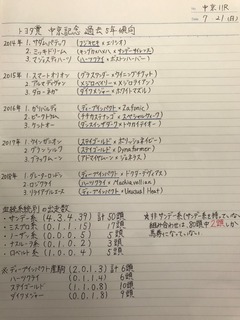 中京11R
7-21(日)
トヨタ賞 中京記念 過去5年傾向
2014年 1. サダムパテック (フジキセキ×エリシオ)
2. ミッキードリーム (キングカメハメハ×サンデーサイレンス)
3. マジェスティハーツ (ハーツクライ×ボストンハーバー)
2015年 1. スマートオリオン (グラスワンダー×ウイニングチケット)
2. アルマディヴァン (メジロベイリー×メジロライアン)
3. ダローネガ (ダイワメジャー×ホワイトマズル)
2016年 1. ガリバルディ (ディープインパクト×Zafonic)
2. ピークトラム (チチカステナンゴ×スペシャルウィーク)
3. ケントオー (ダンスインザダーク×トウカイテイオー)
2017年 1. ウインガニオン (ステイゴールド×ポリッシュネイビー)
2. グランシルク (ステイゴールド×Dynaformer)
3. ブラックムーン (アドマイヤムーン×ジェネラス)
2018年 1. グレーターロンドン (ディープインパクト×ドクターデヴィアス)
2. ロジクライ (ハーツクライ×Machiavellian)
3. リライアブルエース (ディープインパクト×Unusual Heat)
血統系統別の出走数
・サンデー系 (4.3.4.39) 計50頭
・ミスプロ系 (0.1.1.15) 17頭
・ノーザン系 (0.0.0.5) 5頭
・ナスルーラ系 (0.1.0.2) 3頭
・ロベルト系 (1.0.0.4) 5頭
ディープインパクト産駒 (2.0.1.3) 計6頭
ハーツクライ (0.1.1.4) 6頭
ステイゴールド (1.1.0.8) 10頭
ダイワメジャー (0.0.1.8) 9頭
組み合わせは、80頭中2頭しか
馬券になっていない!